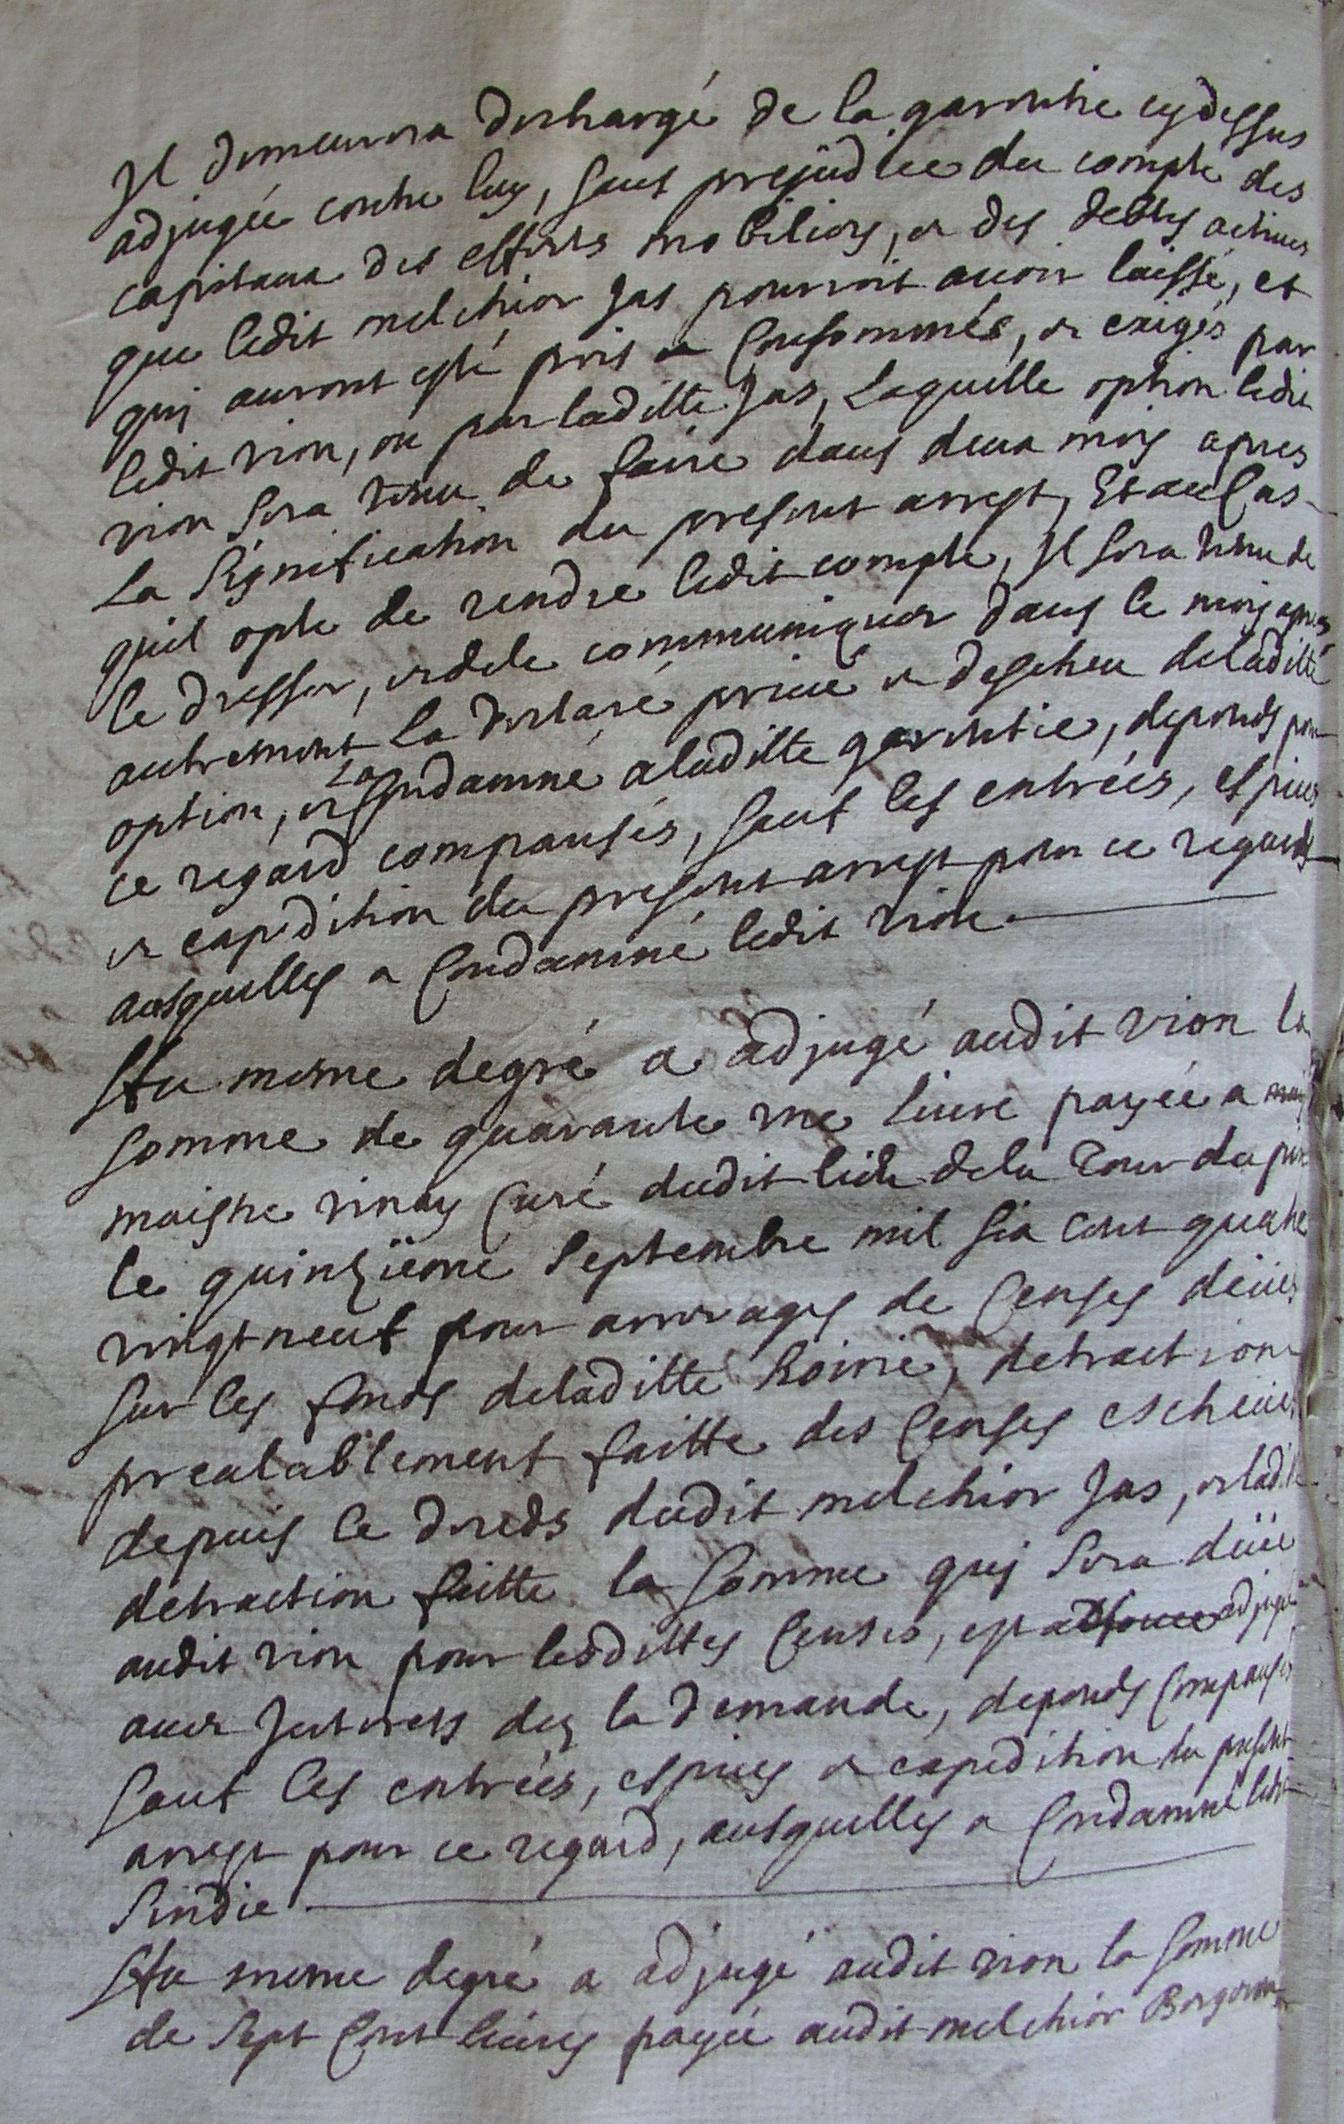 Il demeurera deschargé de la garentie cydessus
adjugée contre luy, sauf prejudice du compte des
capitaux des effects mobiliers, et des debtes actives
que ledit melchior Jas pourroit avoir laissé, et
quj auront esté pris et Consommés, et exigés par
ledit vion, ou par laditte Jas, Laquelle option ledit
vion sera tenu de faire dans deux mois apres
La signification du present arrest, Et au Cas
quil opte de rendre ledit compte, Il sera tenu de
le dresser, et de le communiquer dans le mois apres
autrement La declaré privé et descheu deladitte
option, et La Condamné a laditte garentie, depends pour
ce regard compansés, sauf les entrées, espices
et expedition du present arrest pour ce regard
ausquelles a Condamné ledit vion
Au mesme degré a adjugé audit vion la
somme de quarante une livre payée a
maistre vinay Curé dudit lieu de la Tour du pin
le quinzieme septembre mil six cent quatre
vingt neuf pour arrerages de Censes deües
sur les fonds deladitte hoirie, detraction
prealablement faitte des Censes escheües
depuis le deceds dudit melchior Jas, et laditte
detraction faitte la somme quj sera düe
audit vion pour lesdittes Censes, est adjugée
avec Interests dez la demande, depends Compansés
sauf les entrées, espices et expedition du present
arrest pour ce regard, ausquelles a Condamné ledit
sindic
Au mesme degré a adjugé audit vion la somme
de sept Cent livres payée audit melchior